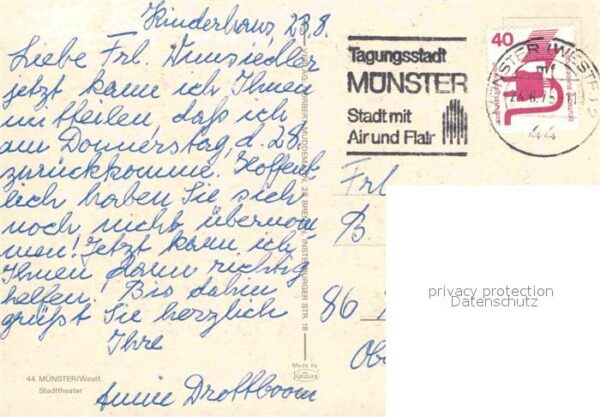 Kinderhaus, 23.8.
Liebe Frl. Wunsiedler
jetzt kann ich Ihnen
mitteilen, daß ich
am Donnerstag, d. 28.
zurückkomme. Hoffent-
lich haben Sie sich
noch nicht übernom-
men! Jetzt kann ich
Ihnen dann richtig
helfen. Bis dahin
grüßt Sie herzlich
Ihre
Annie Drottboom
44 MÜNSTER/Westf.
Stadttheater
VERLAG NORBERT MUDDEMANN, 28 BREMEN, INSTERBURGER STR. 18
Made by
Krüger
Tagungsstadt
MÜNSTER
Stadt mit
Air und Flair
40
MÜNSTER (WESTF) 2
44
Frl
B.
86
privacy protection
Datenschutz